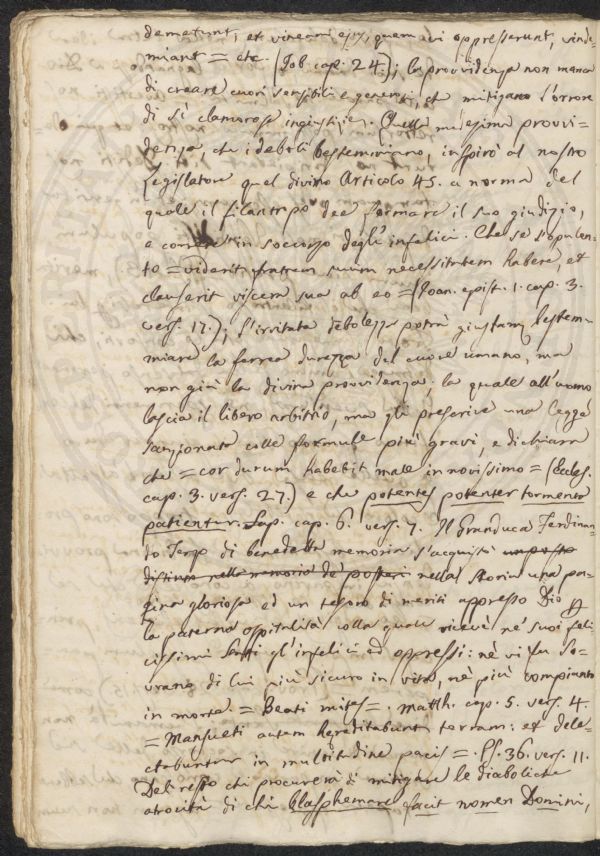 demetunt, et vineam ejus, quem vi oppresserunt, vinde-
miant = etc. (Job. cap. 24.); la provvidenza non manca
di creare cuori sensibili e generosi, che mitigano l'orrore
di sì clamorose ingiustizie. Quella medesima provvi-
denza che i deboli bestemmiano, inspirò al nostro
Legislatore quel divino Articolo 45. a norma del
quale il filantropo dee formare il suo giudizio,
e correre in soccorso degl'infelici. Che se l'opulen-
to = viderit fratrem suum necessitatem habere, et
clauserit viscera sua ab eo = (Joan. epist. 1. cap. 3.
vers. 17.); l'irritata debolezza potrà giustam. bestem-
miare la ferrea durezza del cuore umano, ma
non già la divina provvidenza, la quale all'uomo
lascia il libero arbitrio, ma gli prescrive una legge
sanzionata colle formule più gravi, e dichiara
che = cor durum habebit male in novissimo = (Eccles.
cap. 3. vers. 27.) e che potentes potenter tormenta
patientur. Sap. cap. 6. vers. 7. Il Granduca Ferdinan-
do Terzo di benedetta memoria s'acquistò un posto
distinto nella memoria de' posteri nella Storia una pa-
gina gloriosa ed un tesoro di meriti appresso Dio p
la paterna ospitalità colla quale ricevè ne' suoi feli-
cissimi Stati gl'infelici ed oppressi: nè vi fu So-
vrano di lui più sicuro in vita, nè più compianto
in morte = Beati mites =. Matth. cap. 5. vers. 4.
= Mansueti autem hereditabunt terram: et dele-
ctabuntur in multitudine pacis =. Ps. 36. vers. 11.
Del resto chi procurerà di mitigare le diaboliche
atrocità di chi blasphemare facit nomen Domini,